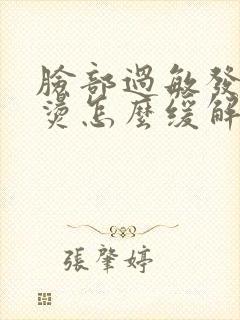 臉部過敏發
燙怎麼緩解
張肇婷